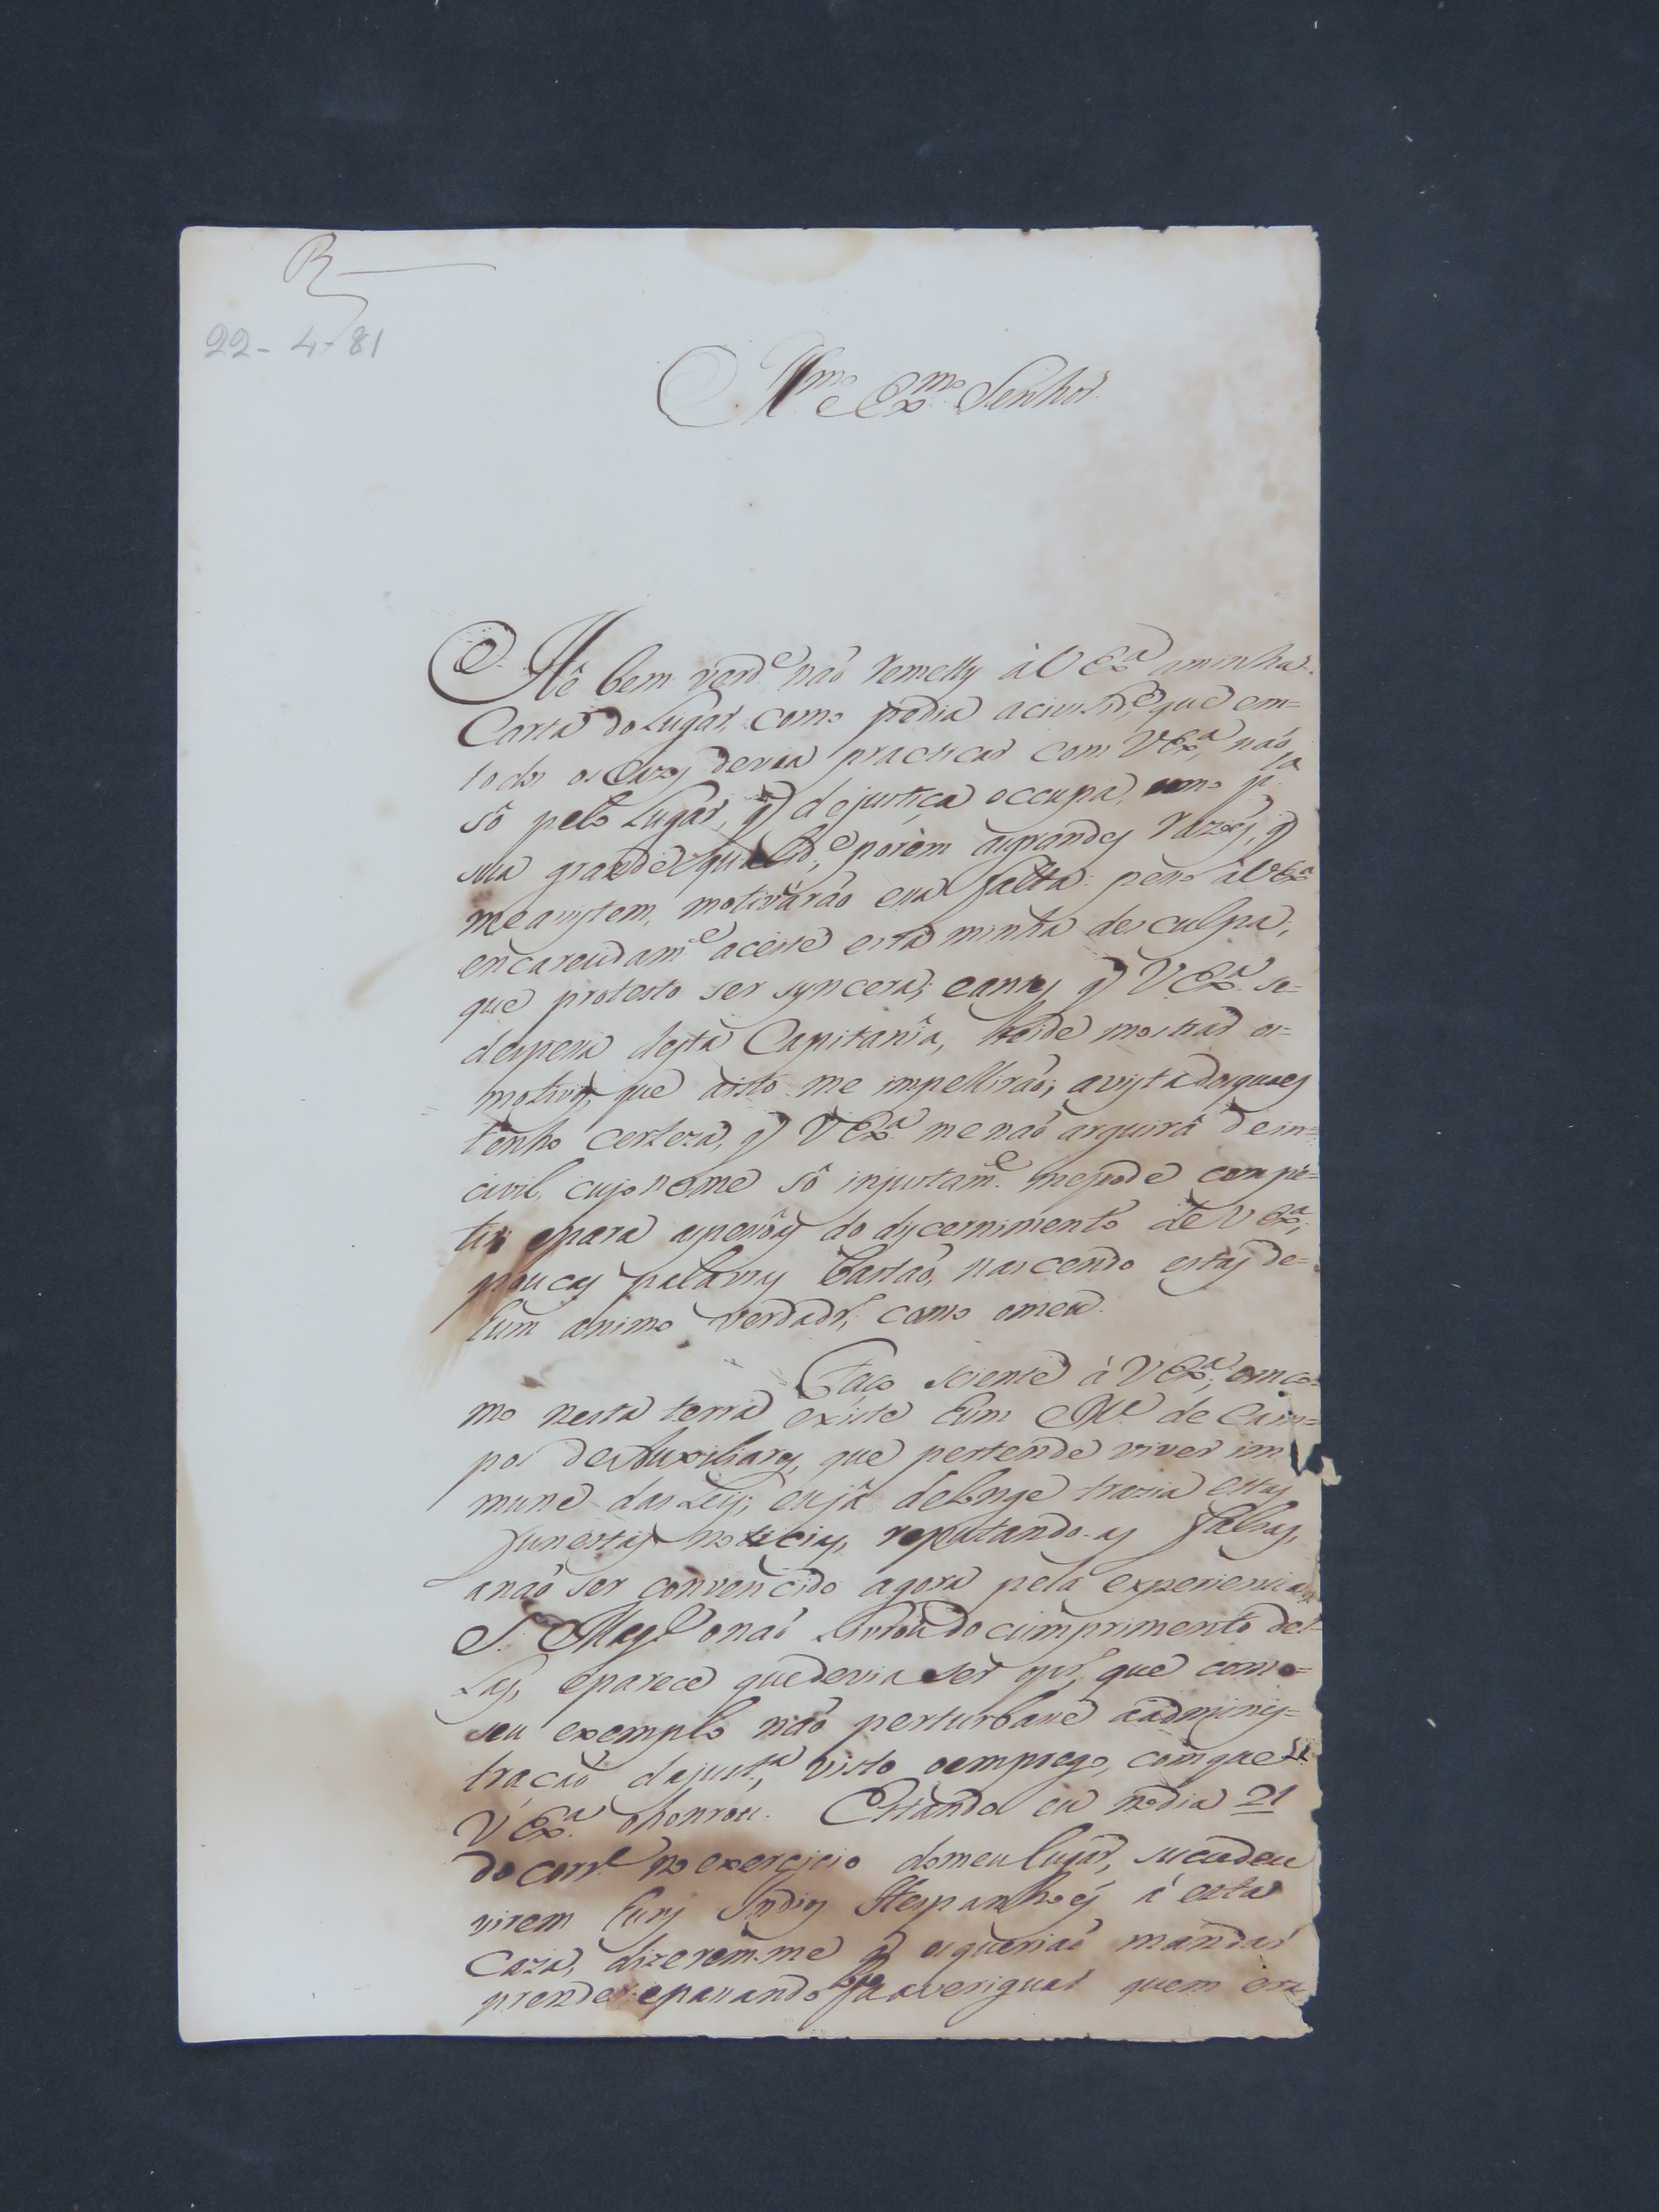 R
22-4-81
Illmo e Exmo Senhor.
Hê bem verde não remetty à V Exa aminha
Carta do Lugar, como pedia acivilide, que em=
todos os cazos devia practicar com V Exa, não
sô pelo Lugar, q dejustiça occupa, como pla
sua grande qualide; porèm asgrandes razões, q
measistem, motivárão essa falta: peço àV Exa
encarecidame aceite esta minha desculpa,
que protesto ser syncera; eantes q V Exa se=
despessa desta Capitanîa, heide mostrar os=
motivos, que aisto me impellirão; avista dosquaes
tenho certeza, q V Exa me não arguirâ de in=
civil, cujo nome sô injustame mepode compe=
tir; epara aspessôas do discernimento de V Exa,
poucas palavras bastão, nascendo estas de=
hum animo verdadro, como omeu.
Faço sciente à V Exa, em co=
mo nesta terra existe hum Me de Cam=
po de Auxiliares, que pertende viver im
mune das Leis; eujâ delonge trazia estas
funestas noticias, reputando-as falsas,
anão ser convencido agora pela experiencia,
S. Mage onão izentou do cumprimento des=
Leys, eparece quedevia ser que como=
seu exemplo não perturbasse áadminis=
tração dajusta, visto oemprego, comque
V Exa ohonrou. Estando eu nodia 21
do corre no exercicio domeu lugar, sucedeu
virem huns Indios Hespanhoes á esta
Caza, dizerem-me q osquerião mandar
prender: epassando averiguar quem era